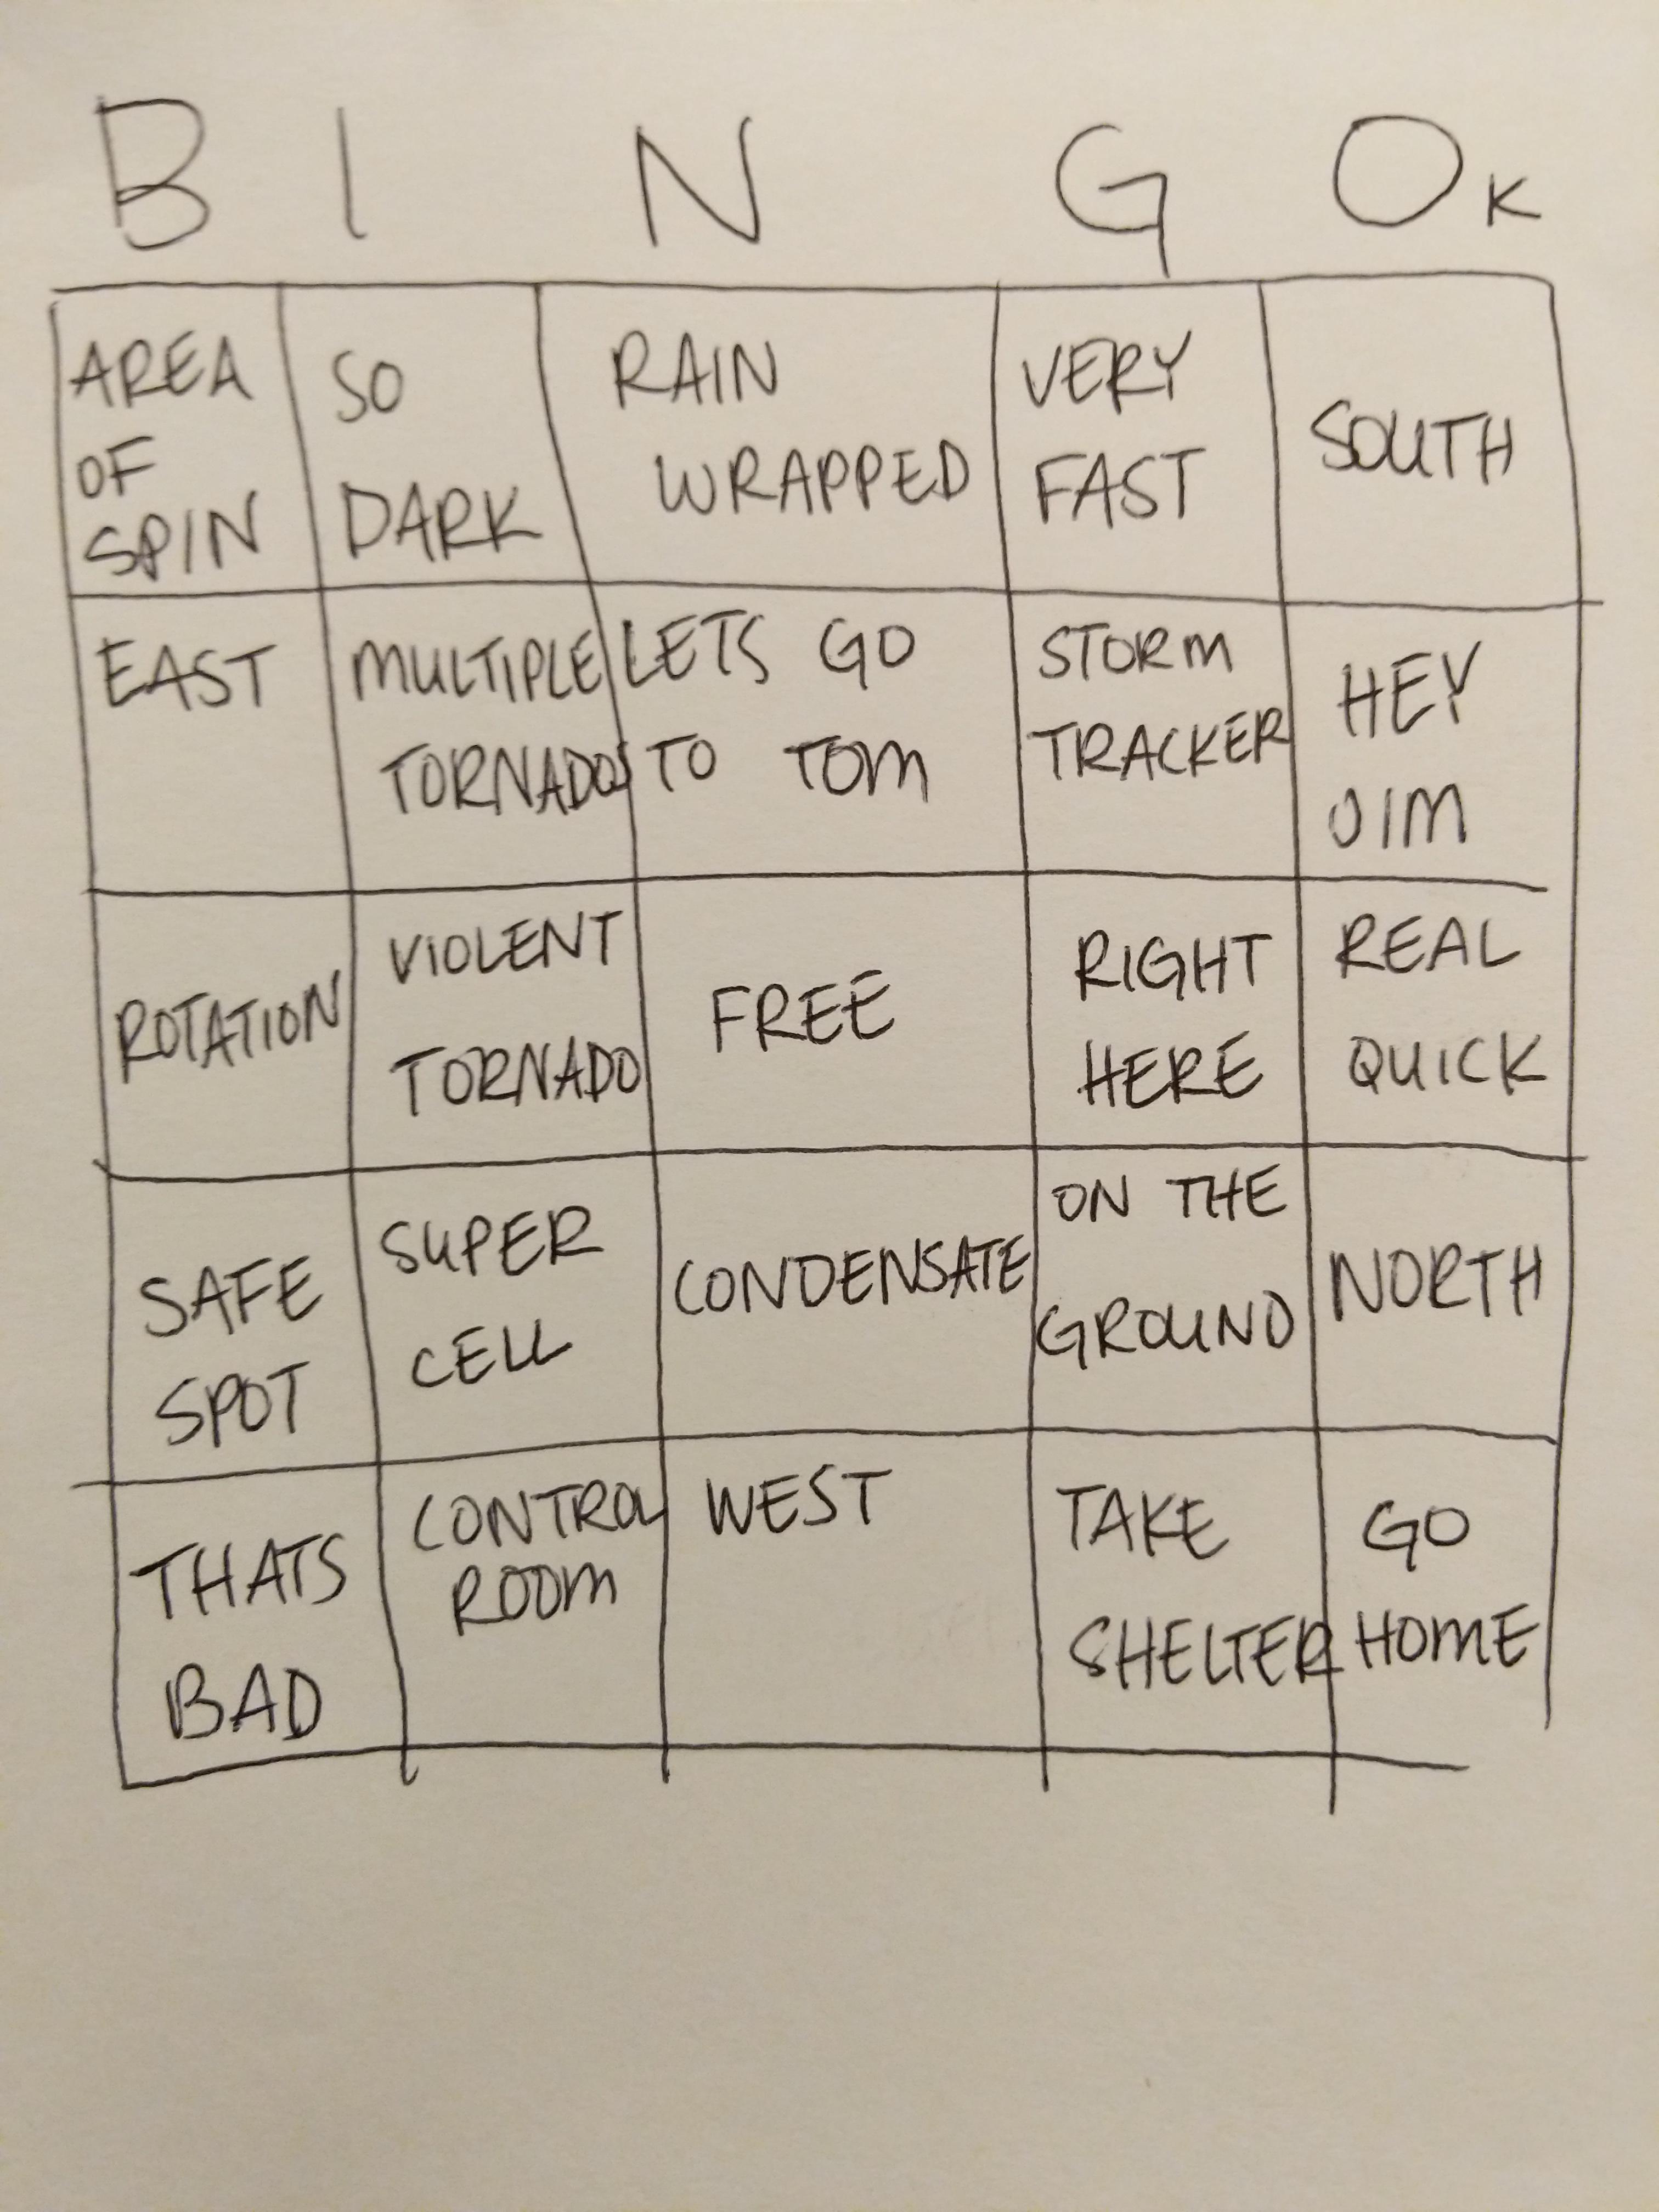 B I N G OK
AREA
OF
SPIN
SO
DARK
RAIN
WRAPPED
VERY
FAST
SOUTH
EAST
MULTIPLE
TORNADOS
LETS GO
TO TOM
STORM
TRACKER
HEY
JIM
ROTATION
VIOLENT
TORNADO
FREE
RIGHT
HERE
REAL
QUICK
SAFE
SPOT
SUPER
CELL
CONDENSATE
ON THE
GROUND
NORTH
THATS
BAD
CONTROL
ROOM
WEST
TAKE
SHELTER
GO
HOME